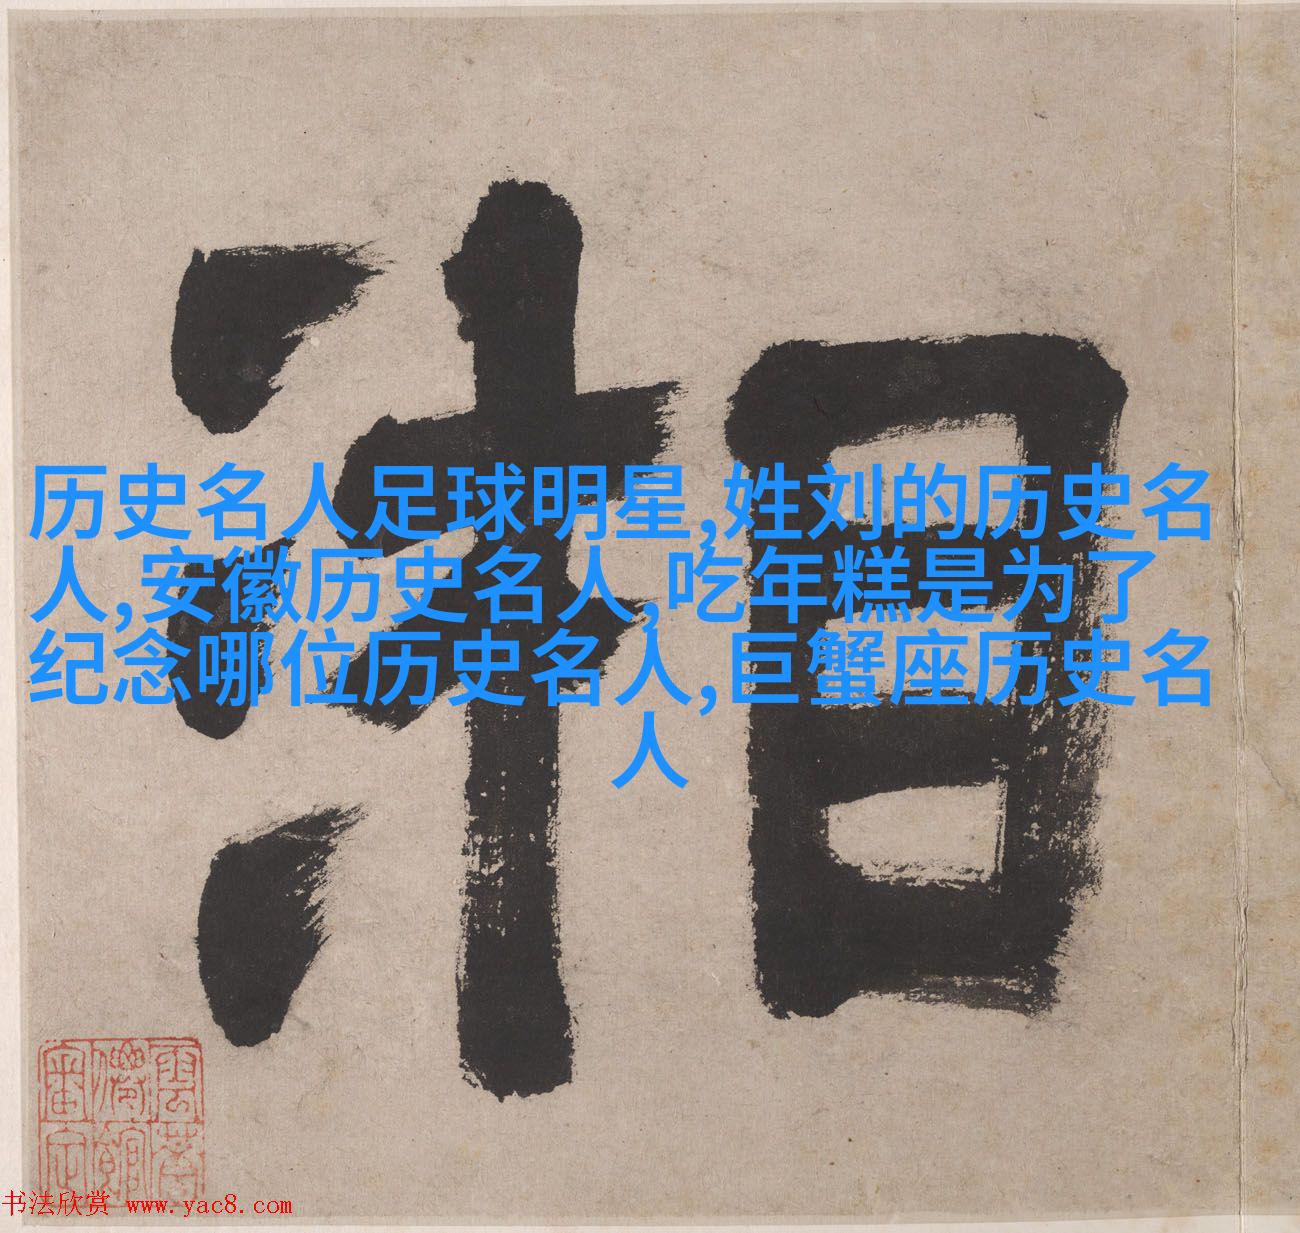 湘
历史名人足球明星,姓刘的历史名
人,安徽历史名人,吃年糕是为了
纪念哪位历史名人,巨蟹座历史名
人
书法欣赏 www.yac8.com